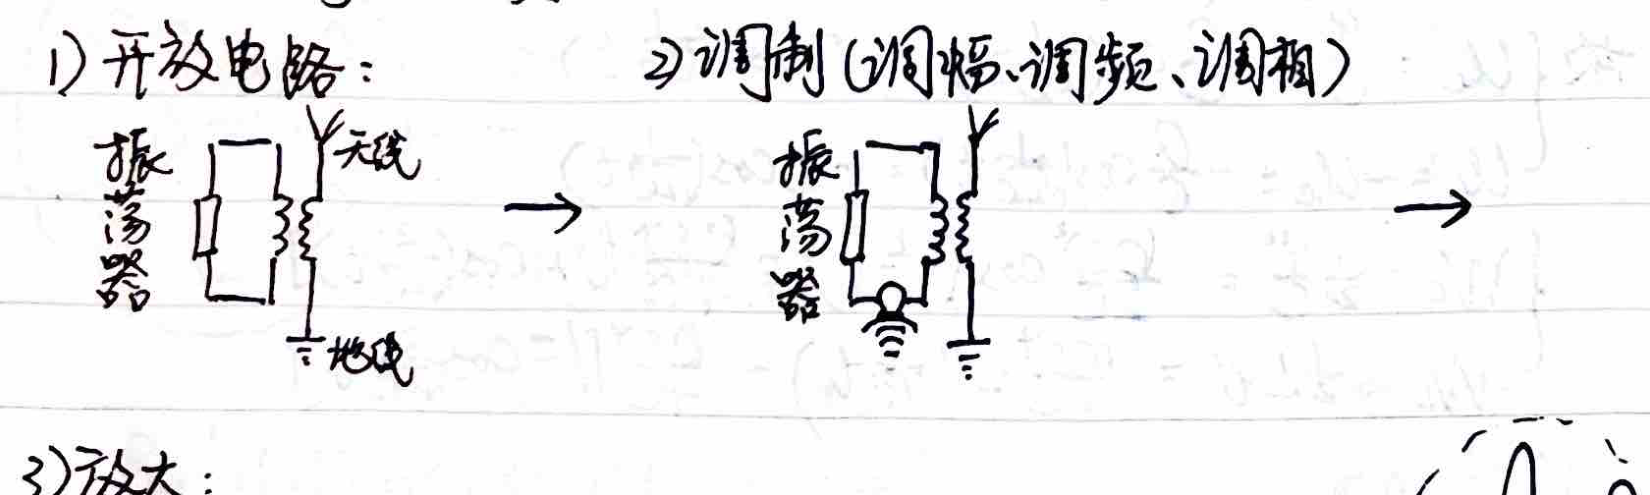 1) 开放电路:
2) 调制 (调幅、调频、调相)
振荡器
天线
地线
振荡器
3) 放大: